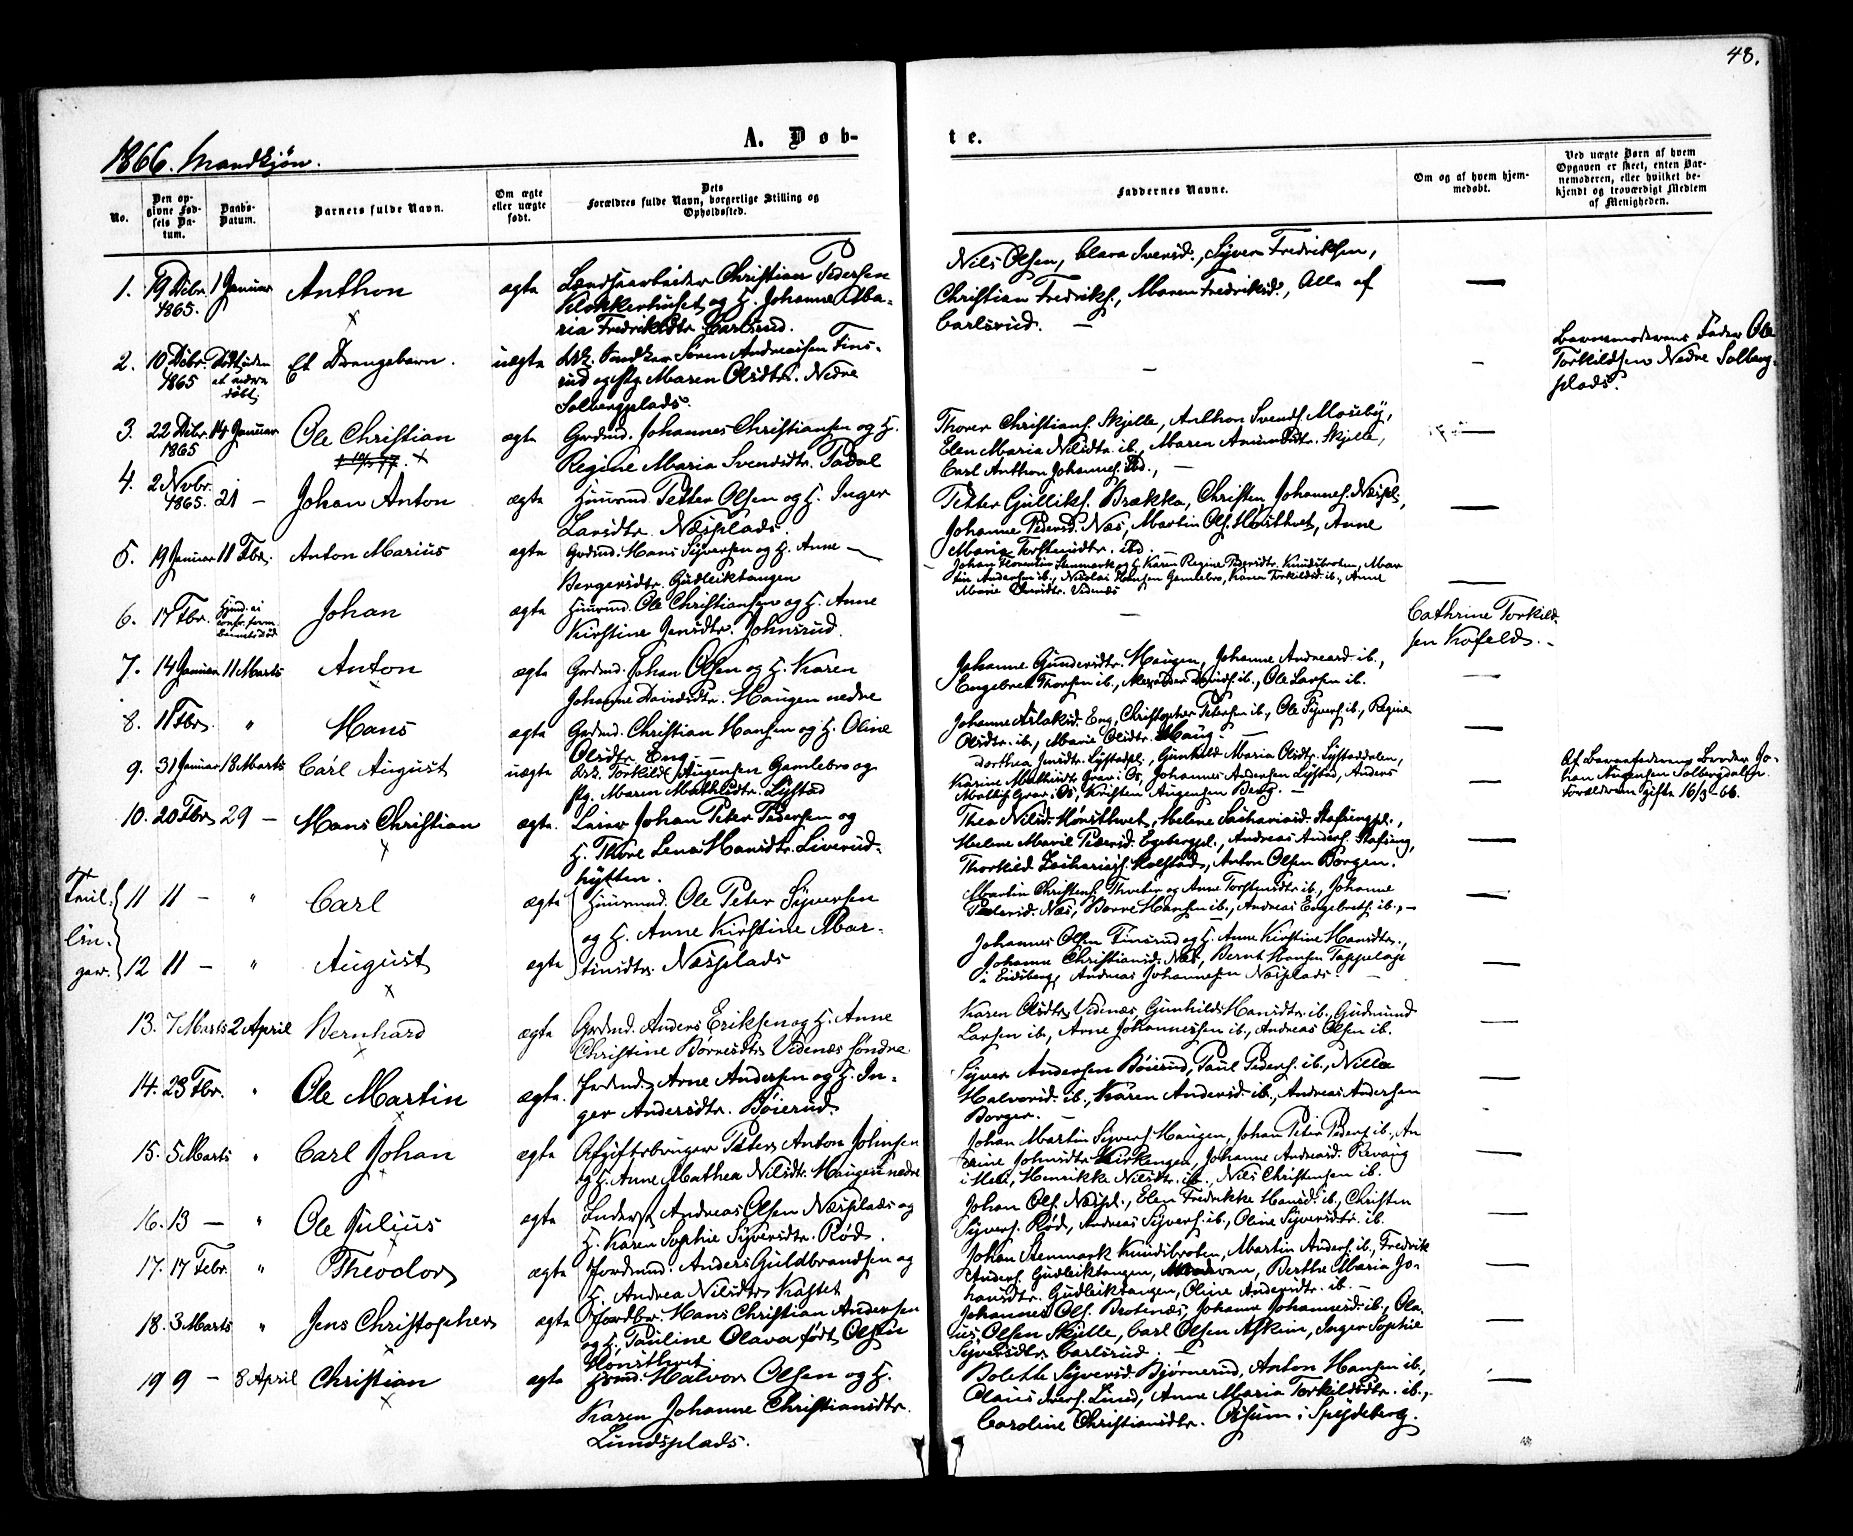 48.
1866. Mandkjøn.
A. Døb-
te.
No.
Den opgivne Fødsels Datum.
Daabs-Datum.
Barnets fulde Navn.
Om ægte eller uægte født.
Dets Forældres fulde Navn, borgerlige Stilling og Opholdssted.
Faddernes Navne.
Om og af hvem hjemmedøbt.
Ved uægte Børn af hvem Opgaven er skeet, enten Barnemoderen, eller hvilket bekjendt og troværdigt Medlem af Menigheden.
1. 19 Dcbr. 1865. 1 Januar Anthon ægte
Christian Pedersen
Klokkerhuset og H. Johanne Ma-
ria Fredriksdtr. Carlsrud.
Nils Olsen, Clara Iversd., Syver Fredriksen,
Christian Fredriks., Maren Fredriksd., Alle af
Carlsrud. —
2. 10 Dcbr. 1865 Et Drengebarn. uægte
Søren Andreassen Fins-
rud og Pg. Maren Olsdtr. Nedre
Solbergplads.
Barnemoderens Fader Ole
Torkildsen Nedre Solberg-
plads.
3. 22 Dcbr. 1865 14 Januar Ole Christian ægte
Grdmd. Johannes Christiansen og H.
Regine Maria Svendsdtr.
Thorer Christians. Skjelle, Anthon Svends. Moseby,
Elen Maria Nilsdtr. ib., Maren Amundsdtr. Skjelle,
Carl Anthon Johannes. ibd., —
4. 2 Novbr. 1865. 21 — Johan Anton ægte
Huusmd. Petter Olsen og H. Inger
Larsdtr. Næsplads.
Petter Gulliks. Brække, Christen Johannes. Næspl.,
Johanne Pedersd. Næs, Martin Ols. Hønsthvet, Anne
Maria Torstensdtr. ibd. —
5. 19 Januar 11 Fbr. Anton Marius ægte
Grdmd. Hans Syversen og H. Anne —
Bergersdtr. Gudleiktangen
Johan Florentin Stenmark og H. Karen Regine Pedersdtr. Knudsbroten, Mar-
tin Andersen ib., Nicolai Hansen Gamlebro, Karen Torkildsd. ib., Anne
Marie Videnæs
6. 17 Fbr. Johan ægte
Huusmd. Ole Christiansen og H. Anne
Kirstine Jensdtr. Johnsrud.
Cathrine Torkild-
sen Kofeldt. —
7. 14 Januar 11 Marts Anton ægte
Grdmd. Johan Olsen og H. Karen
Johanne Davidsdtr. Haugen nedre
Johanne Gundersdtr. Haugen, Johanne Andreasd. ib.,
Engebret Thorsen ib., Alexander Davids. ib., Ole Larsen ib.
8. 11 Fbr. " Hans ægte
Grdmd. Christian Hansen og H. Oline
Olsdtr. Eng —
Johanne Aslaksd. Eng, Christopher Petersen ib., Ole Syvers. ib., Regine
Olsdtr. ib., Marie Olsdtr. Haug. —
9. 31 Januar 18 Marts Carl August uægte
Torkild Augensen Gamlebro og
Pg. Maren Mathisdtr. Lystad
Dorthea Jensdtr. Lystadpl., Gunhild Maria Olsdtr. Lystaddalen,
Karine Mathisdtr. Grav i Os, Johannes Andersen Lystad, Anders
Mathis. Grav i Os, Kristen Augensen Berg. —
Af Barnefaderens Broder Jo-
han Augensen Solbergdalen.
Forældrene gifte 16/3-66.
10. 20 Fbr. 29 — Hans Christian ægte.
Leier Johan Peter Pedersen og
H. Thore Lena Hansdtr. Liverud-
hytten.
Thea Nilsd. Hønsthvet, Helene Zachariasd. Stafsengpl.,
Helene Marie Pedersd. Egebergpl., Andreas Anders. Stafseng,
Thorkild Zacharias. Kolstad, Anton Olsen Borgen.
Tvil-
lin-
ger.
11 11 — " Carl ægte
12 11 — " August ægte
Huusmd. Ole Peter Syversen
og H. Anne Kirstine Mar-
tinsdtr. Næsplads
Martin Christens. Thveter og Anne Torstensdtr. ib., Johanne
Pedersd. Næs, Børre Hansen ib., Andreas Engebrets. ib., —
Johannes Olsen Finsrud og H. Anne Kirstine Hansdtr.,
Johanne Christiansd. Næs, Bernt Hansen
i Eidsberg, Andreas Johannesen Næsplads. —
13. 7 Marts 2 April Bernhard ægte
Grdmd. Anders Eriksen og H. Anne
Christine Børresdtr. Videnæs søndre
Karen Olsdtr. Videnæs, Gunhild Hansdtr. ib., Gudmund
Larsen ib., Arne Johannessen ib., Andreas Olsen ib.
14. 23 Fbr. " Ole Martin ægte.
Arne Andersen og H. In-
ger Andersdtr. Bøierud.
Syver Andersen Bøierud, Paul Peders. ib., Nille
Halvorsd. ib., Karen Andersd. ib., Andreas Andersen
Borger. —
15. 5 Marts " Carl Johan ægte
Afgiftsbruger Peter Anton Johnsen
og H. Anne Mathea Nilsdtr. Haugen nedre
Johan Martin Syvers. Haugen, Johan Peter Peders. ib., An-
drine Johnsdtr. Kirkengen, Johanne Andreasd. Revaug
Henrikke Nilsdtr. ib., Nils Christensen ib.
16. 13 — " Ole Julius ægte
Inderst Andreas Olsen Næsplads og
H. Karen Sophie Syversdtr. Rød.
Johan Ols. Næspl., Elen Fredrikke Hansd. ib., Christen
Syvers. Rød, Andreas Syvers. ib., Oline Syversdtr. ib.
17. 17 Febr. " Theodor ægte
Anders Guldbrandsen og
H. Andrea Nilsdtr. Kastet
Johan Stenmark Knudsbroten, Martin Anders. ib., Fredrik
Anders. Gudleiktangen, Berthe Maria Jo-
hansdtr. Gudleiktangen, Oline Andersdtr. ib. —
18. 3 Marts " Jens Christopher ægte
Jordbr. Hans Christian Andersen
og H. Pauline Olava født Olsen
Hønsthvet.
Johannes Ols. Brotenæs, Johanne Johannesd. ib., Ola-
us Olsen Skjelle, Carl Olsen Askim, Inger Sophie
Syversdtr. Carlsrud. —
19 9 — 8 April Christian ægte
Halvor Olsen og H.
Karen Johanne Christiansdtr.
Lundsplads.
Bolette Syversd. Bjørnerud, Anton Hansen ib.,
Olaus Ivers. Lund, Anne Maria Torkildsdtr. ib.,
Caroline Christiansdtr. i Spydeberg.